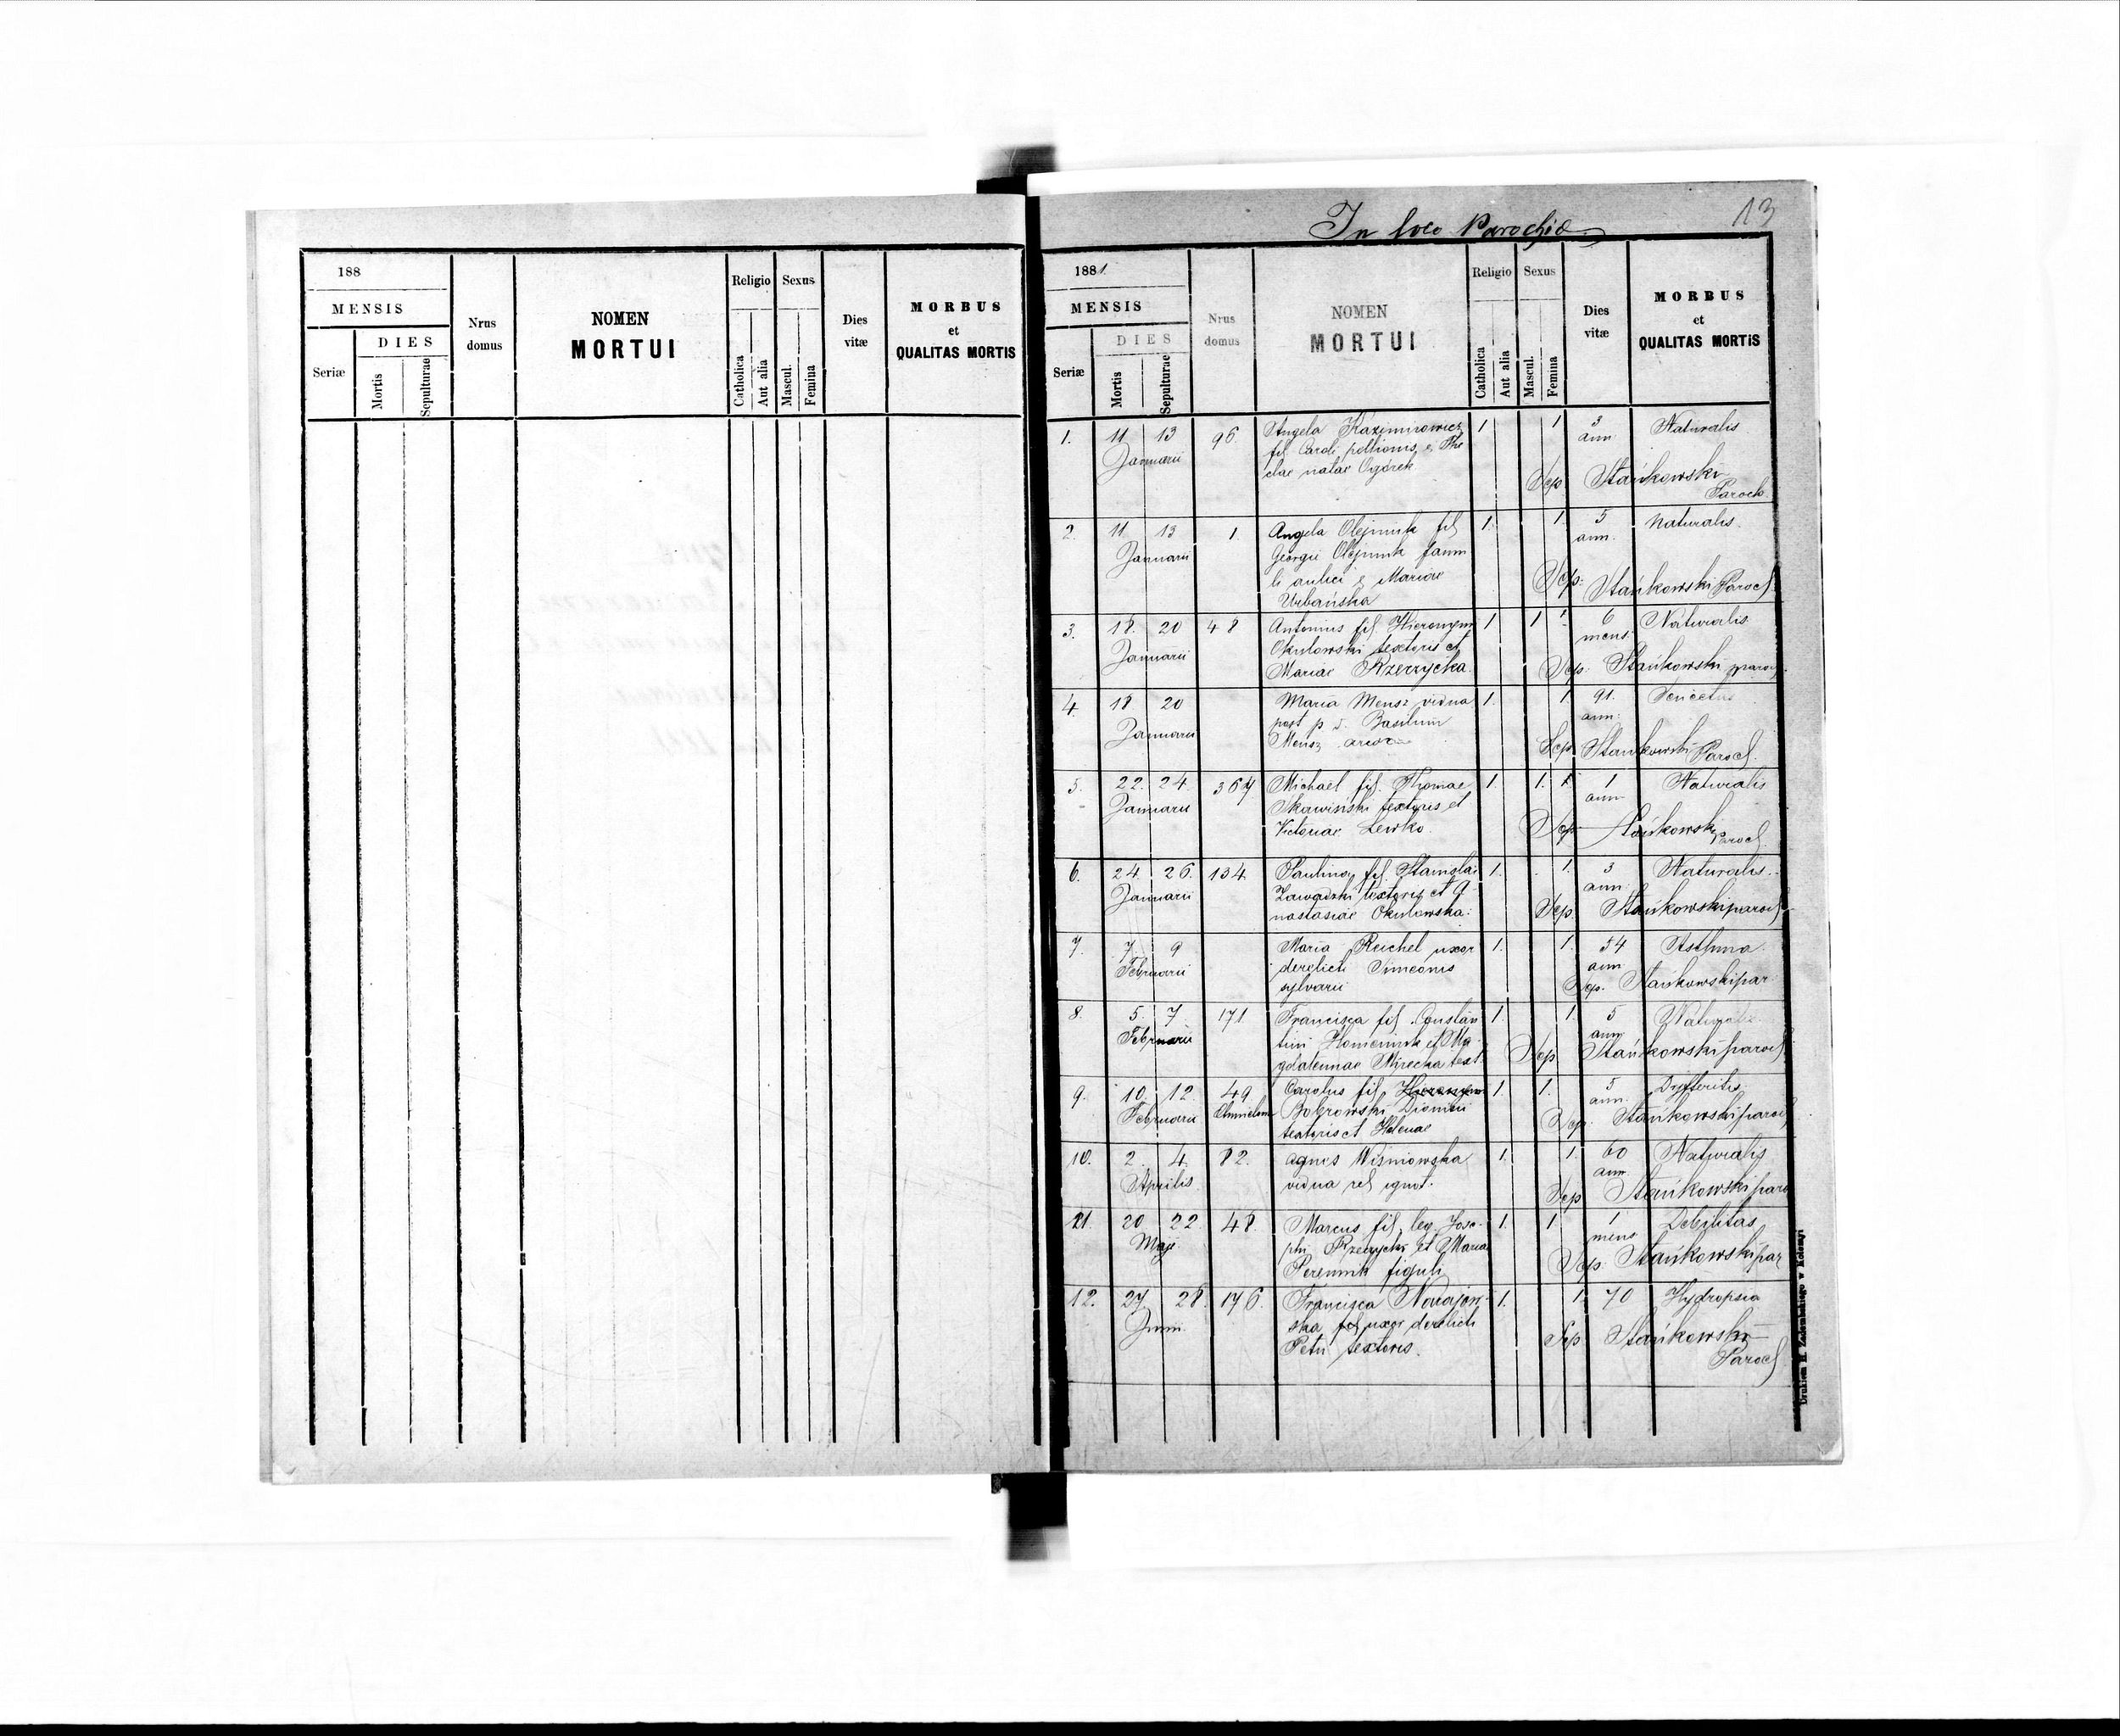 188
MENSIS
Seriæ
DIES
Mortis
Sepulturae
Nrus
domus
NOMEN
MORTUI
Religio
Catholica
Aut alia
Sexus
Mascul.
Femina
Dies
vitæ
MORBUS
et
QUALITAS MORTIS
In loco Parochiæ
13
1881
MENSIS
Seriæ
DIES
Mortis
Sepulturae
Nrus
domus
NOMEN
MORTUI
Religio
Catholica
Aut alia
Sexus
Mascul.
Femina
Dies
vitæ
MORBUS
et
QUALITAS MORTIS
1. 11 13 96. Angela Kazimirowicz 1 1 3 Naturalis
Januarii fil. Caroli pellionis & The ann
clae natae Ogórek Sep. Stańkowski
Paroch
2. 11 13 1 Angela Olejnik fil 1. 1. 5 Naturalis.
Januarii Georgii Olejnik famu ann.
li aulici & Mariae
Urbańska Sep. Stańkowski Paroch
3. 18. 20 48 Antonius fil. Hieronym 1 1 6 Naturalis
Januarii Okulowski textoris et mens
Mariae Rzerzycka. Sep. Stańkowski paroch
4. 18 20 Maria Mensz vidua 1. 1. 91. Senectus
Januarii post p d. Basilium ann.
Mensz Sep Stańkowski Paroch.
5. 22. 24. 364 Michael fil. Thomae 1. 1. 1 Naturalis
Januarii Skawiński textoris et ann
Victoriae Lewko. Sep Stańkowski
Paroch
6. 24. 26. 134 Paulina fil. Stanislai 1. 1. 3 Naturalis.
Januarii Zawadzki textoris et A ann
nastasiae Okulowska. Sep. Stańkowski paroch
7. 7. 9 Maria Reichel uxor 1. 1. 54 Asthma
Februarii derelicti Simeonis ann
sylvarii Sep. Stańkowski par
8. 5. 7 171 Francisca fil. Constan 1. 1. 5 Naturalis
Februarii tini et Ma ann
gdalennae Mirecka text. Sep Stańkowski paroch
9. 10. 12. 49 Carolus fil. Hieronym 1. 1. 5 Dyfteritis
Februarii Bobrowski Dionisii ann.
textoris et Helenae Sep. Stańkowski paroch
10. 2. 4. 82. Agnes Wiśniowska 1. 1 60 Naturalis
Aprilis vidua rel ignot. ann
Sep Stańkowski paro
11. 20 22. 48. Marcus fil. leg. Jose- 1. 1 1 Debilitas
Maji phi Rzerzycki et Maria mens
figuli Sep. Stańkowski par
12. 27. 28. 176. Francisca 1. 1 70 Hydropsia
Junii. ska fil uxor derelicti
Petri textoris. Sep Stańkowski
Paroch
Drukiem H. Zadembskiego w Kołomyi